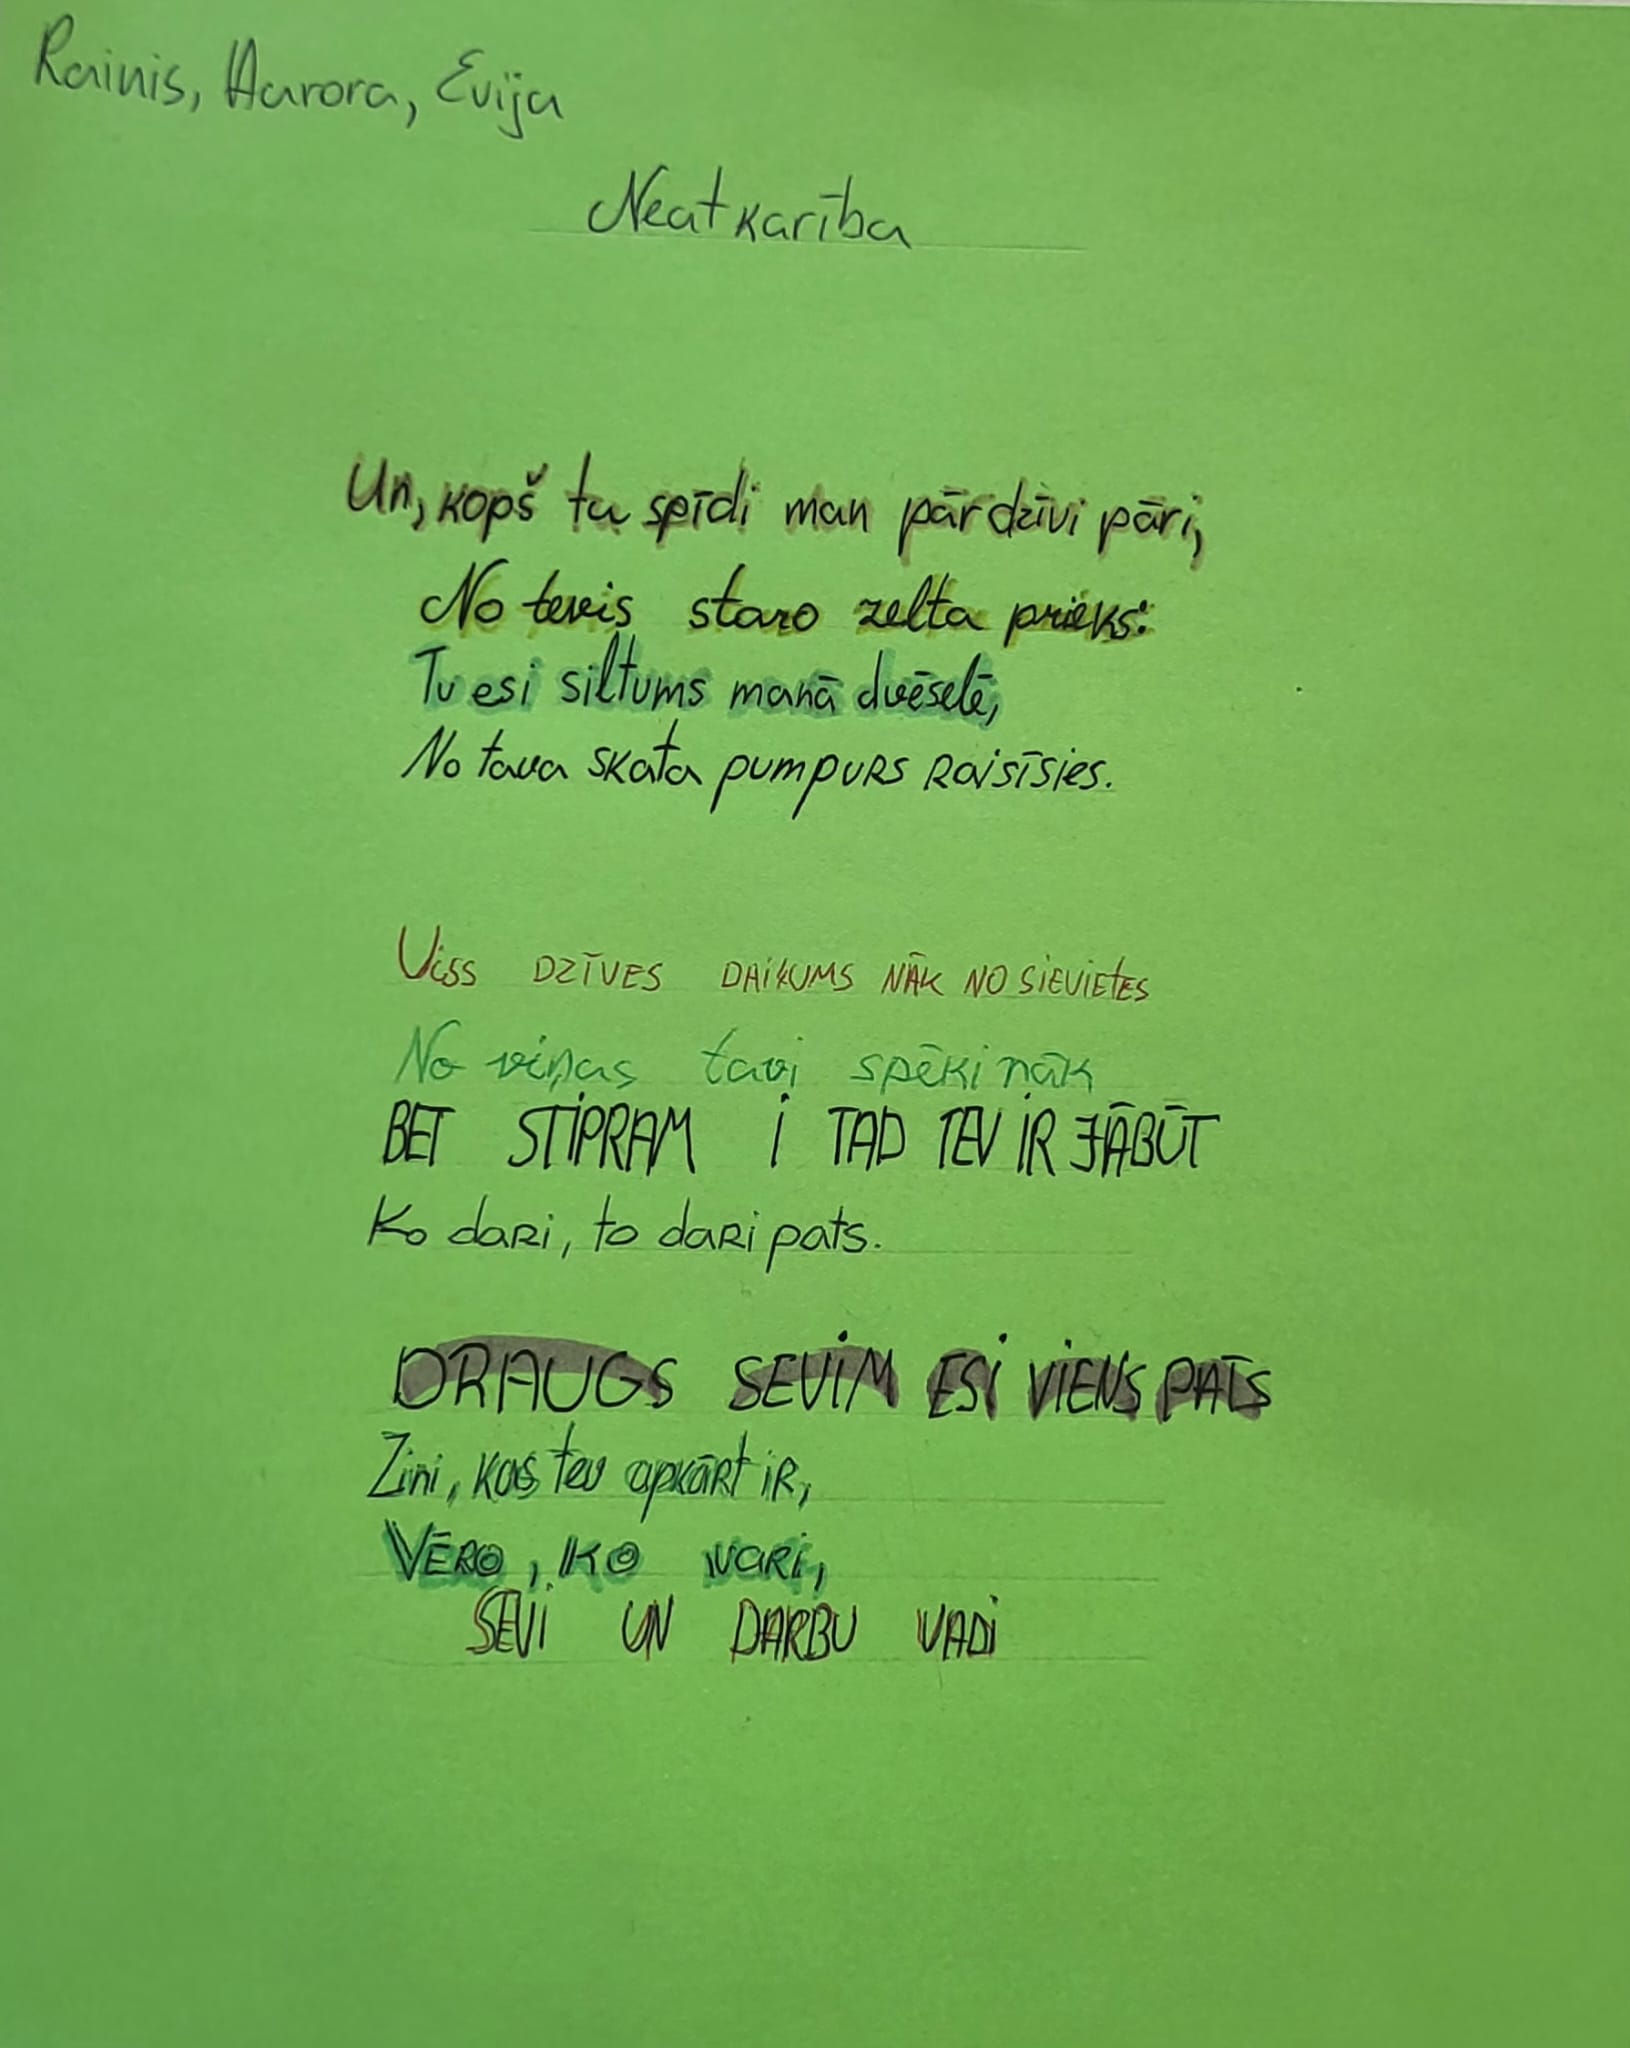 Rainis, Aurora, Evija
Neatkarība
Un, kopš tu spīdi man pār dzīvi pāri,
No tevis staro zelta prieks:
Tu esi siltums manā dvēselē,
No tava skata pumpurs raisīsies.
Viss DZĪVES DAIĻUMS NĀK NO SIEVIETES
No viņas tavi spēki nāk
BET STIPRAM I TAD TEV IR JĀBŪT
Ko dari, to dari pats.
DRAUGS SEVIM ESI VIENS PATS
Zini, kas tev apkārt ir,
VĒRO, KO vari,
SEVI UN DARBU VADI